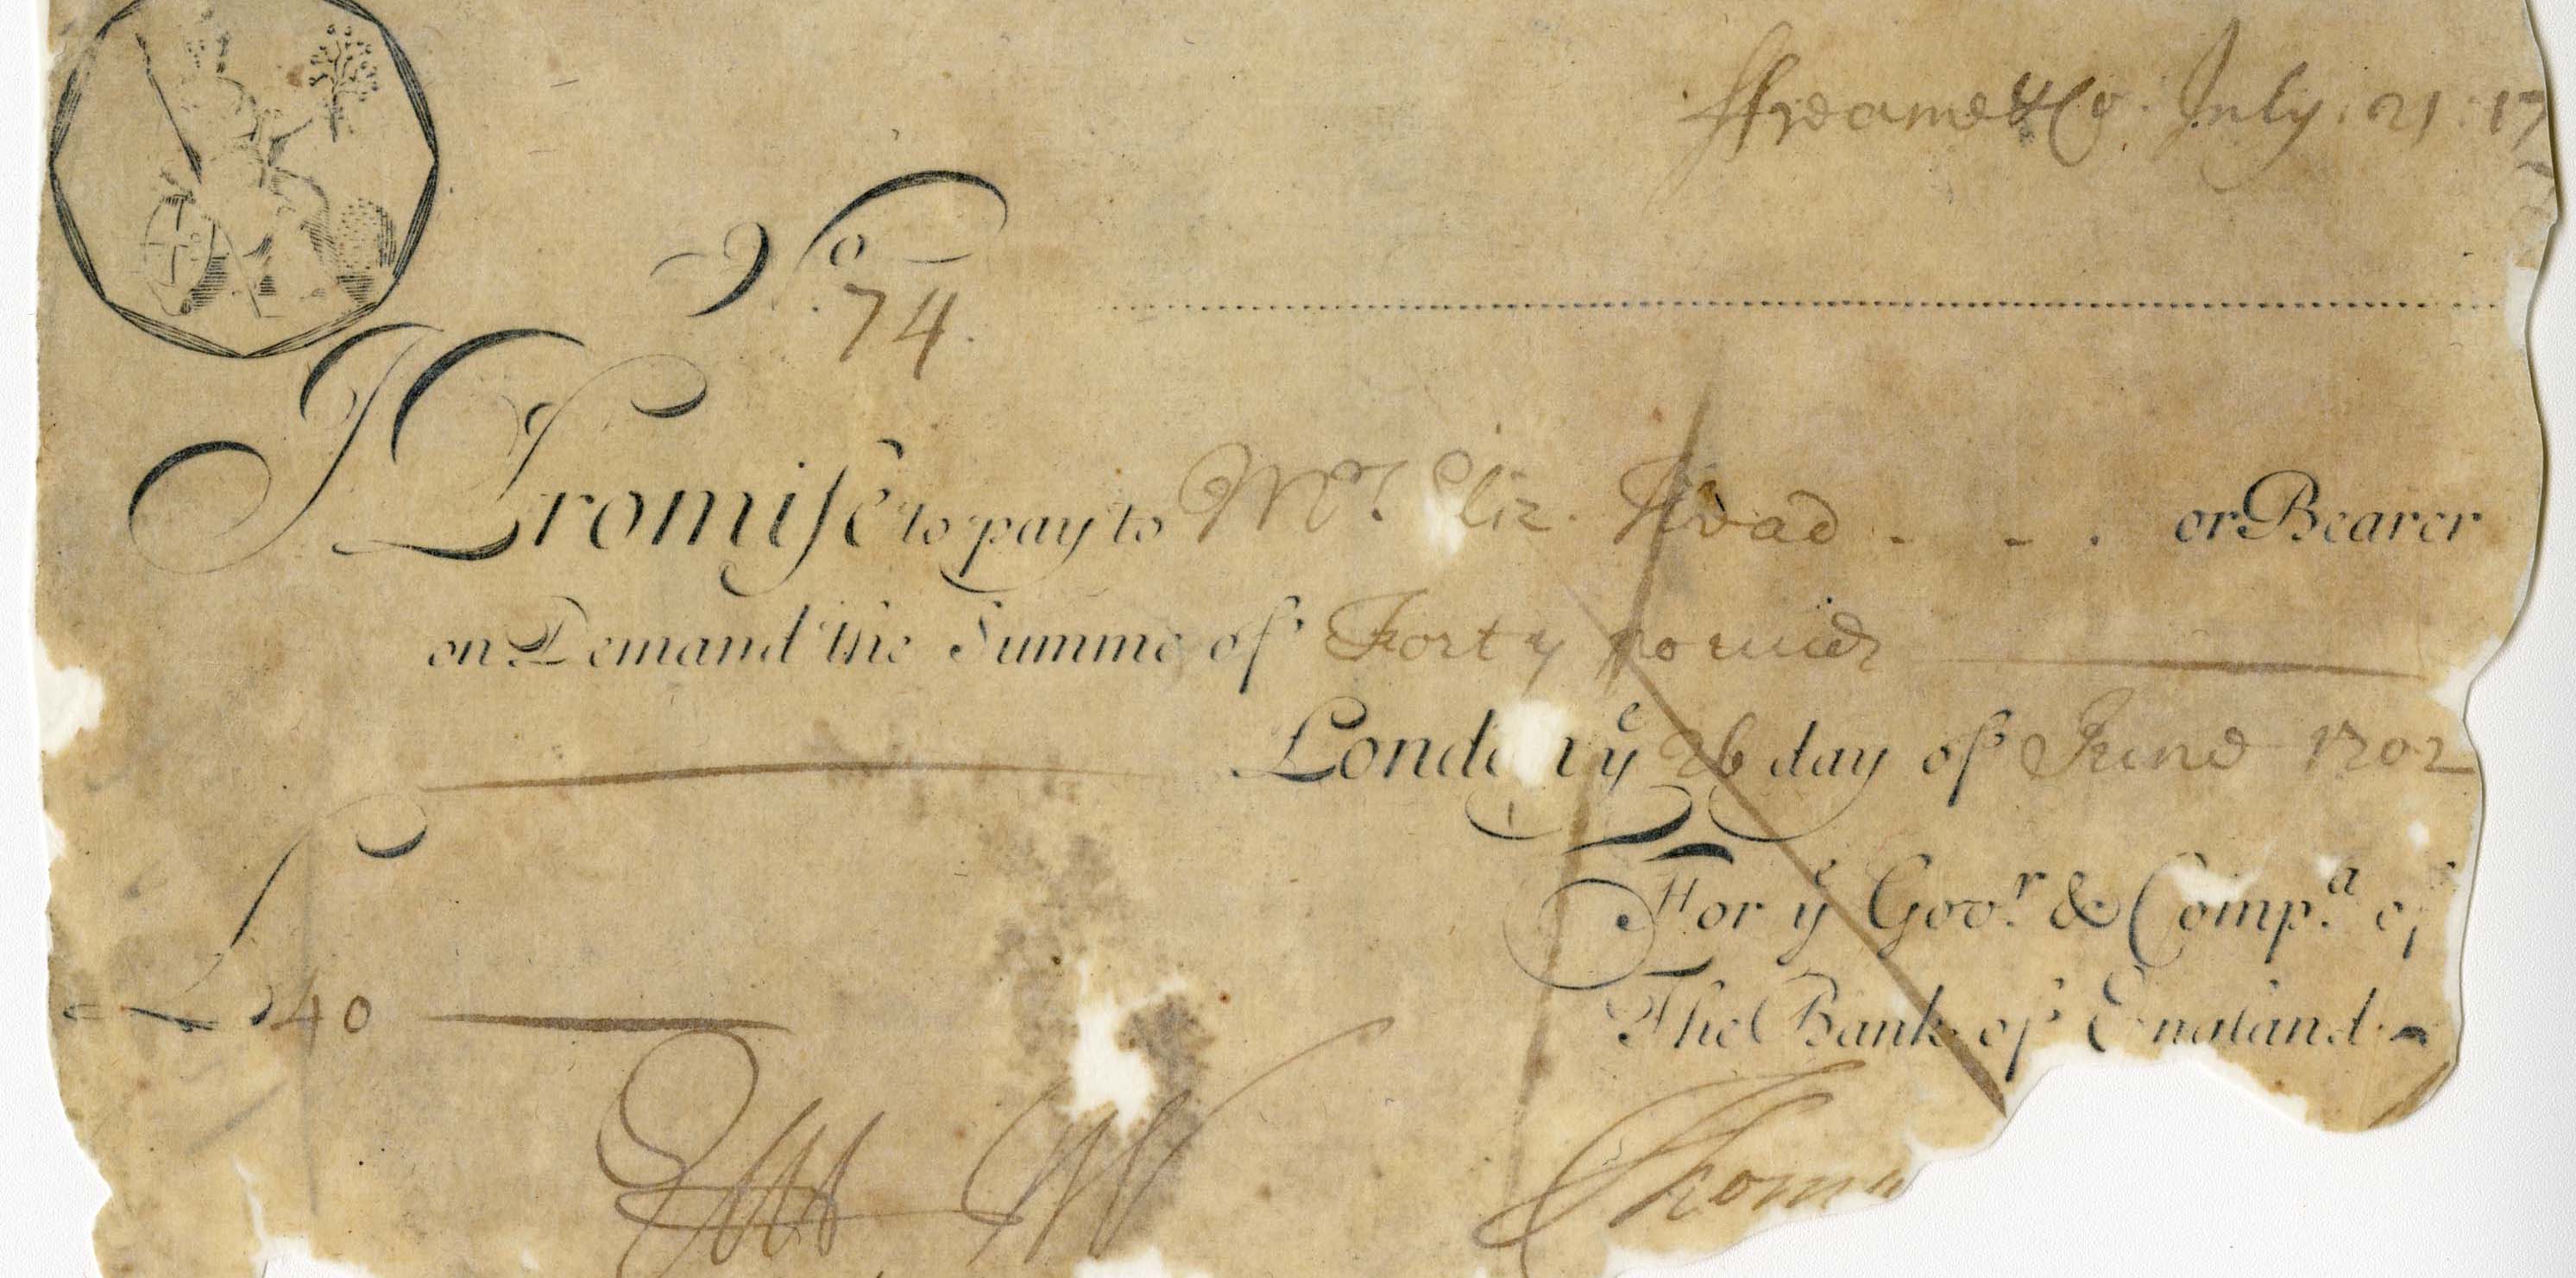 ffreame & Co. July: 21: 17
No
74.
I Promise to pay to Mrs. Eliz. . - . or Bearer
on Demand the Summe of Forty pounds
London ye 26 day of June 1702
For ye Govr. & Compa. of
The Bank of England
£ 40
Thoma